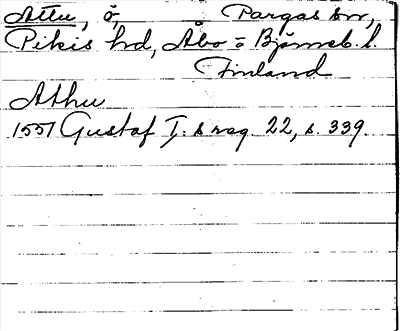 Attu, ö, Pargas sn,
Pikis hd, Åbo = Björneb. l.
Finland
Athu
1557 Gustaf I:s reg. 22, s. 339.